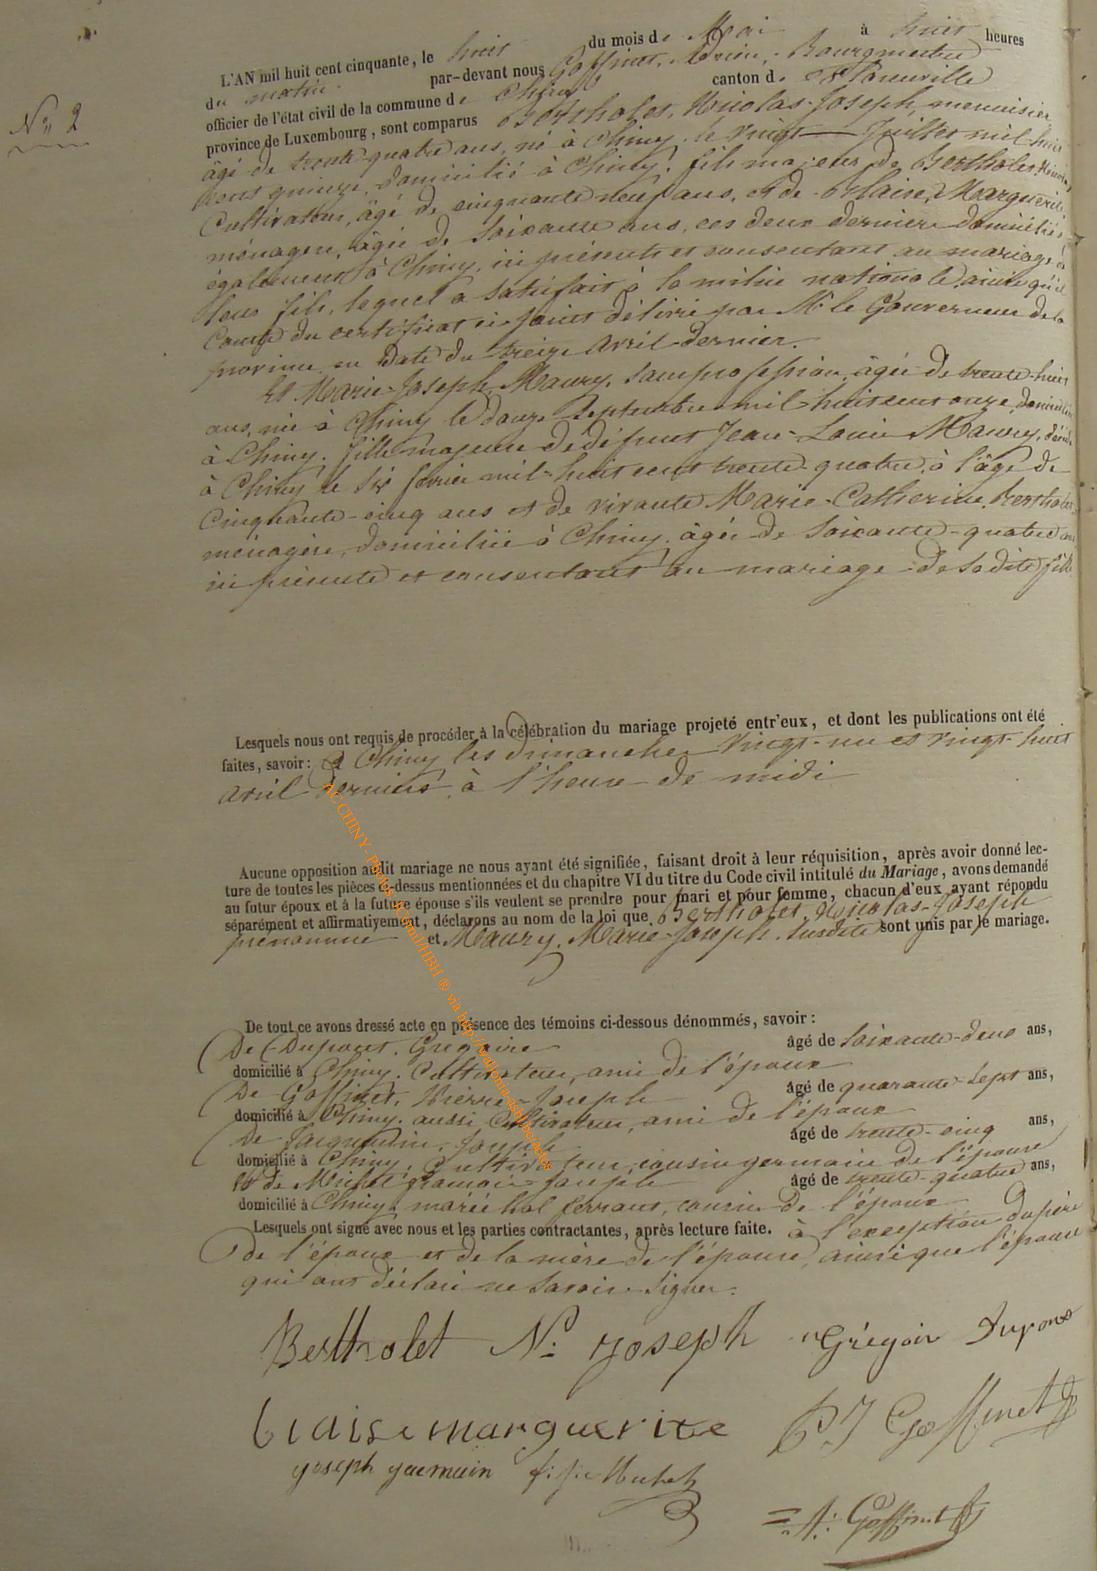 N° 2
L'AN mil huit cent cinquante, le huit du mois de Mai à huit heures
du matin. par-devant nous Goffinet, Adrien, Bourgmestre
officier de l'état civil de la commune de Chiny canton de Florenville
province de Luxembourg, sont comparus Bertholet, Nicolas-Joseph, menuisier,
âgé de trente-quatre ans, né à Chiny, le vingt Juillet mil huit
cent quinze, domicilié à Chiny, fils majeur de Bertholet,
Cultivateur, âgé de cinquante neuf ans, et de Blaise, Marguerite,
ménagère, âgée de Soixante ans, ces deux derniers domiciliés
également à Chiny, ici présents et consentant au mariage de
leur fils, lequel a satisfait à la milice nationale ainsi qu'il
Conste du certificat ci-joint délivré par Mr le Gouverneur de la
province en date du treize Avril dernier.
Et Marie-Joseph Maury, sans profession, âgée de trente-huit
ans, née à Chiny le douze Septembre mil huit cent onze, domiciliée
à Chiny, fille majeure de défunt Jean-Louis Maury, décédé
à Chiny le six février mil-huit cent trente-quatre, à l'âge de
Cinquante-cinq ans et de vivante Marie-Catherine Bertholet
ménagère, domiciliée à Chiny, âgée de Soixante-quatre ans
ici présente et consentant au mariage de sa dite fille
Lesquels nous ont requis de procéder à la célébration du mariage projeté entr'eux, et dont les publications ont été
faites, savoir: à Chiny les dimanches vingt-un et vingt-huit
avril derniers, à l'heure de midi
Aucune opposition audit mariage ne nous ayant été signifiée, faisant droit à leur réquisition, après avoir donné lec-
ture de toutes les pièces ci-dessus mentionnées et du chapitre VI du titre du Code civil intitulé du Mariage, avons demandé
au futur époux et à la future épouse s'ils veulent se prendre pour mari et pour femme, chacun d'eux ayant répondu
séparément et affirmativement, déclarons au nom de la loi que Bertholet, Nicolas-Joseph
prénommé et Maury, Marie-Joseph, susdite sont unis par le mariage.
De tout ce avons dressé acte en présence des témoins ci-dessous dénommés, savoir:
De Dupont, Grégoire âgé de soixante-deux ans,
domicilié à Chiny, Cultivateur, ami de l'époux
De Goffinet, Pierre-Joseph âgé de quarante-sept ans,
domicilié à Chiny, aussi Cultivateur, ami de l'époux
De Jacquemin, Joseph âgé de trente-cinq ans,
domicilié à Chiny, Cultivateur, cousin germain de l'épouse
Et de Michel François-Joseph âgé de trente-quatre ans,
domicilié à Chiny, maréchal ferrant, cousin de l'époux
Lesquels ont signé avec nous et les parties contractantes, après lecture faite. à l'exception du père
de l'époux et de la mère de l'épouse, ainsi que l'épouse
qui ont déclaré ne savoir signer.
Bertholet N: Joseph Grégoir Dupont
blaise marguerite P. J Goffinet
Joseph f: j: Michel
A: Goffinet